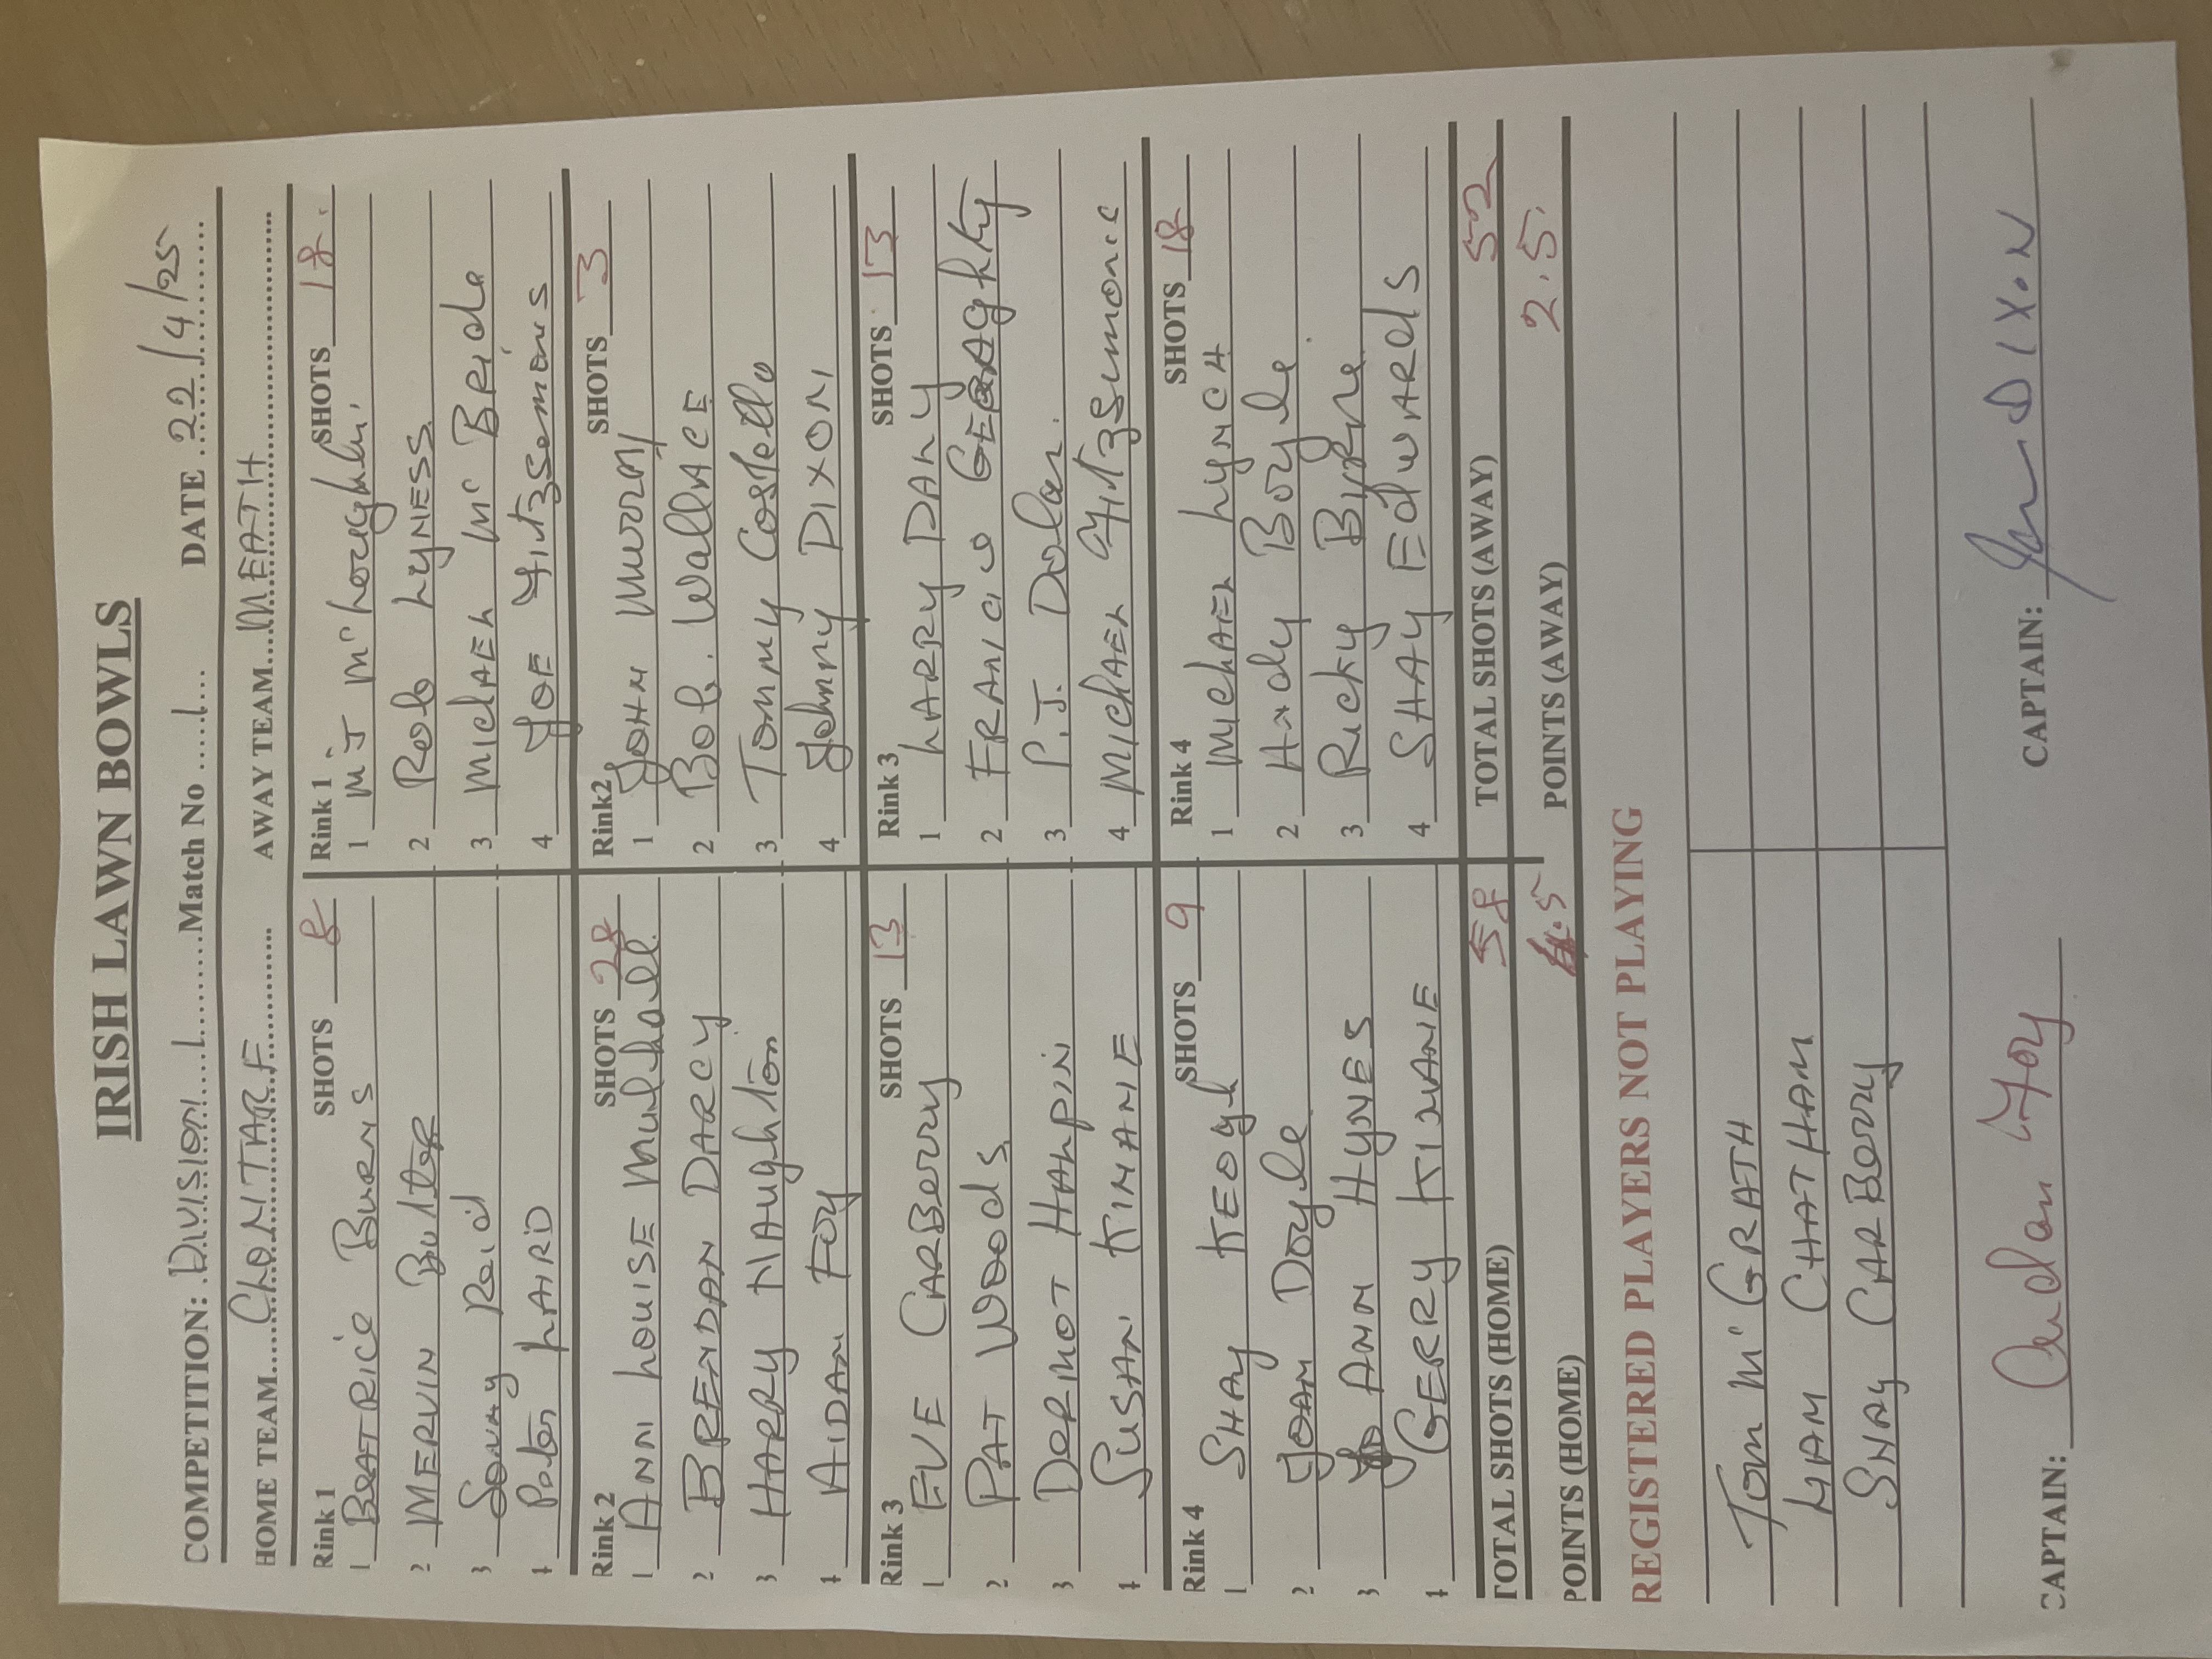 IRISH LAWN BOWLS
COMPETITION: DIVISION 1 Match No 1 DATE 22/4/25
HOME TEAM CLONTARF AWAY TEAM MEATH
Rink 1 SHOTS 8 Rink 1 SHOTS 18
1 BEATRICE BURNS 1 MJ Mc Loughlin
2 MERVIN Butler 2 Rob LYNESS
3 Sonny Reid 3 MICHAEL Mc BRIDE
4 Peter LAIRD 4 JOE Fitzsemons
Rink 2 SHOTS 28 Rink2 SHOTS 3
1 ANN LOUISE Mulhall 1 JOHN
2 BRENDAN DARCY 2 Bob. WallACE
3 HARRY NAughton 3 TOMMY Costello
4 AIDAN FOY 4 Johnny DIXON
Rink 3 SHOTS 13 Rink 3 SHOTS 13
1 EVE CARBERRY 1 LARRY DALY
2 PAT WOODS 2 FRANCIS GERAGhty
3 DERMOT HALPIN 3 P.J. Dolan
4 SUSAN KINANE 4 MICHAEL Fitzsimons
Rink 4 SHOTS 9 Rink 4 SHOTS 18
1 SHAY KEOGh 1 MICHAEL LYNCH
2 JOAN DOyle 2 Andy Boyle
3 ANN HYNES 3 Ricky Byrne
4 GERRY KINANE 4 SHAY EdWARdS
TOTAL SHOTS (HOME) 58 TOTAL SHOTS (AWAY) 52
POINTS (HOME) 4.5 POINTS (AWAY) 2.5
REGISTERED PLAYERS NOT PLAYING
Tom Mc GRATH
LIAM CHATHAM
SHAY CARBERRY
CAPTAIN: Aidan Foy CAPTAIN: DIXON